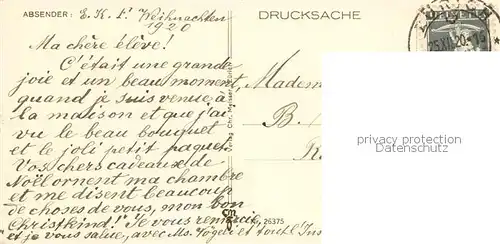 ABSENDER: E. K. F! Weihnachten
1920
DRUCKSACHE
25.XII.20
Ma chère élève!
C'était une grande
joie et un beau moment,
quand je suis venue à
la maison et que j'ai
vu le beau bouquet
et le joli petit paquet
Vos chers cadeaux de
Noël ornent ma chambre
et me disent beaucoup
de choses de vous, mon bon
Christkind! Je vous remercie
et je vous salue, avec Ms. et tout l'Ins
Madem
B.
R
privacy protection
Datenschutz
26375